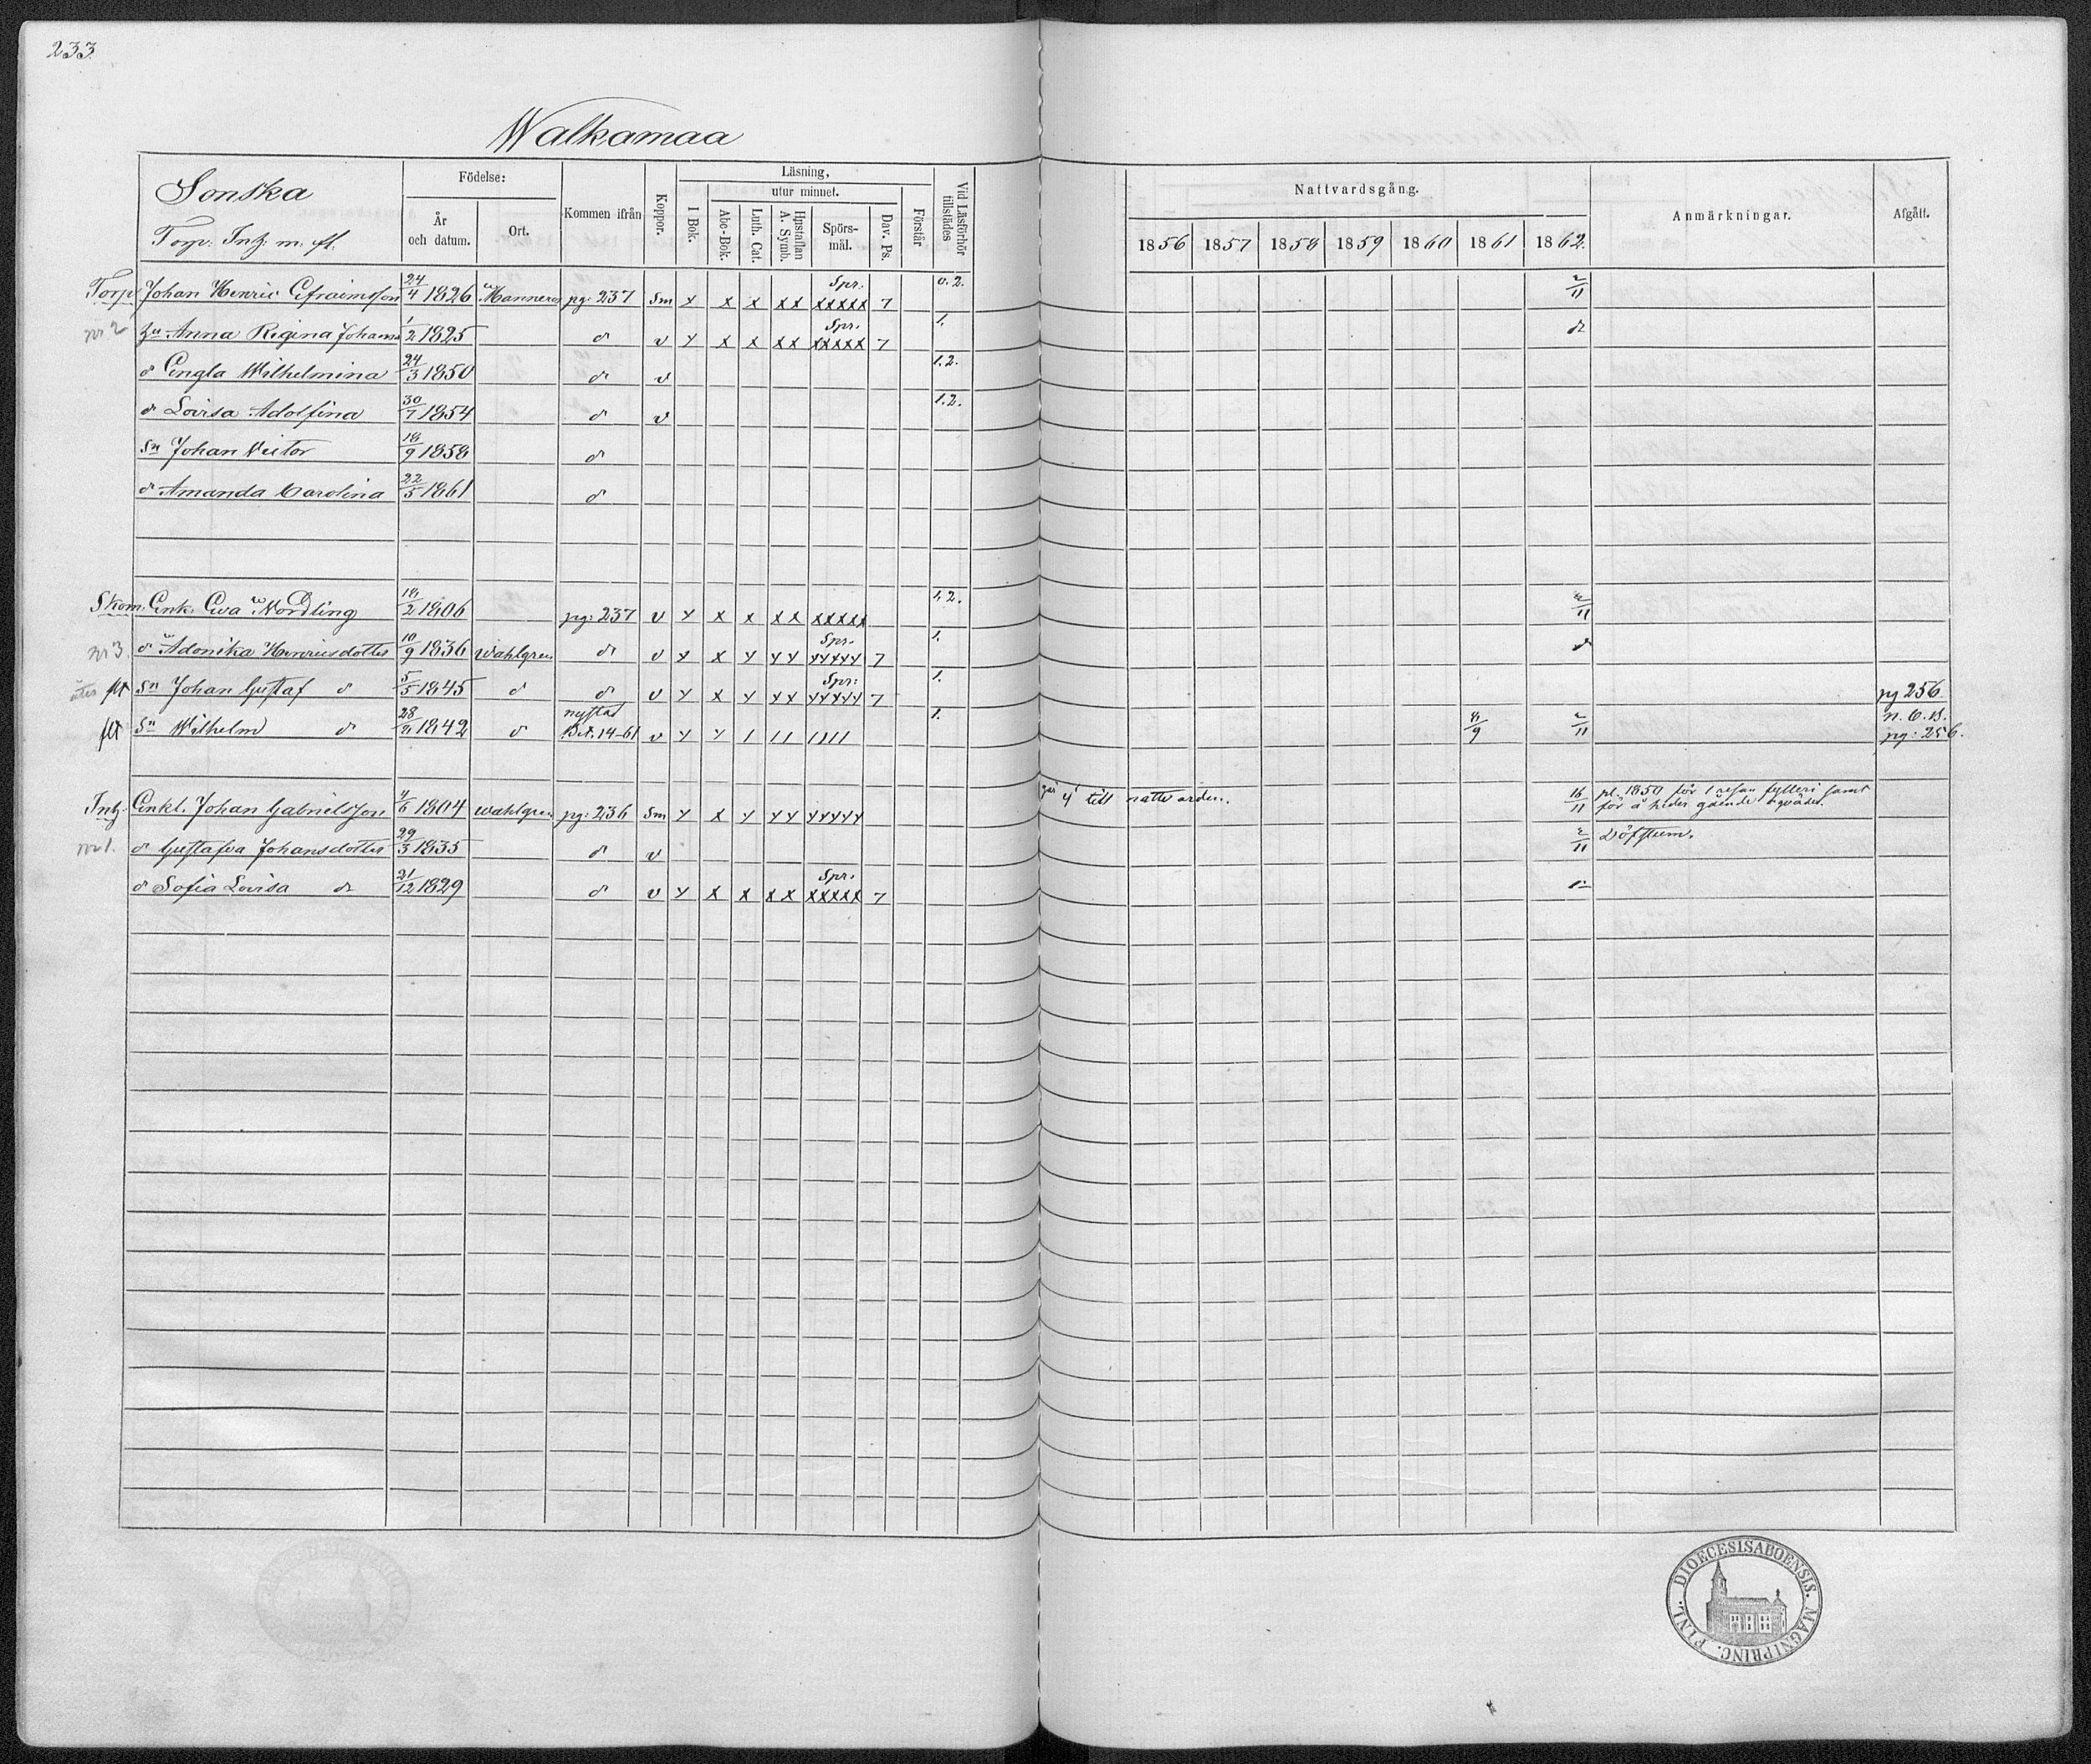 233.
Walkamaa
Sonska
Torp. Inh. m. fl.
Födelse:
År och datum.
Ort.
Kommen ifrån
Koppor.
Läsning,
I Bok.
utur minnet.
Abc-Bok.
Luth. Cat.
Hustaflan A. Symb.
Spörsmål.
Dav. Ps.
Förstår
Vid Läsförhör tillstädes
Nattvardsgång.
1856 1857 1858 1859 1860 1861 1862.
Anmärkningar.
Afgått.
Torp. Johan Henric Efraimsson 24/4 1826 Manneros pg. 237 Sm x x x xx Spr. xxxxx 7 0.2. 2/11
nr 2 hu Anna Regina Johans 1/2 1825 d v x x x xx Spr. xxxxx 7 1. d
d Engla Wilhelmina 24/3 1850 d v 1.2.
d Lovisa Adolfina 30/7 1854 d v 1.2.
Sn Johan Victor 18/9 1858 d
d Amanda Carolina 22/5 1861 d
Skom. Enk. Eva Nordling 18/2 1806 pg. 237 v x x x xx xxxxx 1.2. 2/11
nr 3. d Adonika Henricsdotter 10/9 1836 Wahlgren d v x x x xx Spr. xxxxx 7 1. d
åter flt Sn Johan Gustaf d 5/5 1845 d d v x x x xx Spr. xxxxx 7 1. pg 256
flt Sn Wilhelm d 28/8 1842 d nystad Bet. 14-61 v x x 1 11 1111 1. 8/9 2/11 n. 6. B. pg: 256.
Inh. Enkl. Johan Gabrielsson 4/6 1804 Wahlgren pg. 236 Sm x x x xx xxxxx går ej till nattvarden. 16/11 pl. 1850 för 1 resan fylleri samt för å heder gående qväden.
nr 1. d Gustafva Johansdotter 29/3 1835 d v 2/11 Döfstum.
d Sofia Lovisa d 21/12 1829 d v x x x xx Spr. xxxxx 7 d
DIOECESIS ABOENSIS. MAGNI PRINC. FINL.